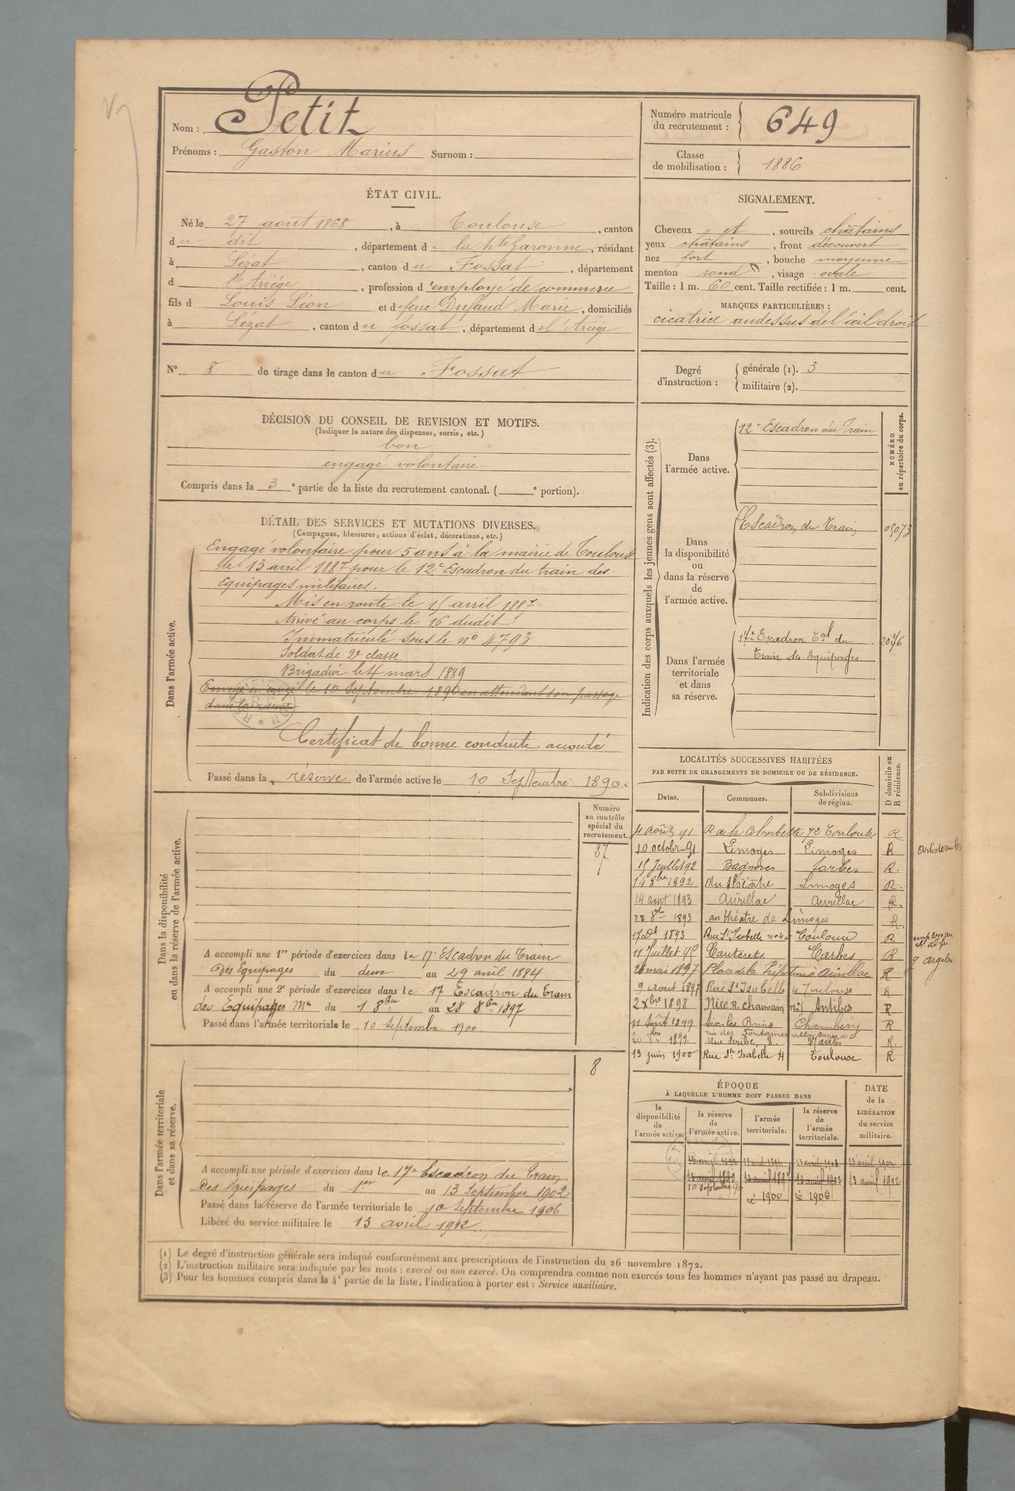 Nom : Petit
Prénoms : Gaston Marius Surnom :
Numéro matricule du recrutement : 649
Classe de mobilisation : 1886
ÉTAT CIVIL.
Né le 27 août 1868, à Toulouse, canton
du dit, département de la Hte Garonne, résidant
à Lézat, canton du Fossat, département
d l'Ariége, profession d'employé de commerce
fils d Louis Léon et d feue Dufaud Marie, domiciliés
à Lézat, canton du fossat, département de l'Ariége
SIGNALEMENT.
Cheveux et, sourcils châtains
yeux châtains, front découvert
nez fort, bouche moyenne
menton rond, visage ovale
Taille : 1 m. 60 cent. Taille rectifiée : 1 m. cent.
MARQUES PARTICULIÈRES :
cicatrice audessus de l'œil droit
N° 8 de tirage dans le canton du Fossat
Degré d'instruction : générale (1). 3
militaire (2).
DÉCISION DU CONSEIL DE REVISION ET MOTIFS.
(Indiquer la nature des dispenses, sursis, etc.)
bon
engagé volontaire
Compris dans la 3e partie de la liste du recrutement cantonal. ( e portion).
DÉTAIL DES SERVICES ET MUTATIONS DIVERSES.
(Campagnes, blessures, actions d'éclat, décorations, etc.)
Dans l'armée active.
Engagé volontaire pour 5 ans à la mairie de Toulouse
le 13 avril 1887 pour le 12e Escadron du train des
équipages militaires.
Mis en route le 15 avril 1887
Arrivé au corps le 16 dudit
Immatriculé sous le n° 4793
Soldat de 2e classe
Brigadier le 4 mars 1889
Envoyé en congé le 10 Septembre 1890 en attendant son passage
dans la réserve
Certificat de bonne conduite accordé
Passé dans la réserve de l'armée active le 10 Septembre 1890.
Indication des corps auxquels les jeunes gens sont affectés (3).
NUMÉRO au répertoire du corps.
Dans l'armée active.
12e Escadron du Train
Dans la disponibilité ou dans la réserve de l'armée active.
Escadron du Train
Dans l'armée territoriale et dans sa réserve.
17e Escadron Tal du
Train des Equipages
LOCALITÉS SUCCESSIVES HABITÉES
PAR SUITE DE CHANGEMENTS DE DOMICILE OU DE RÉSIDENCE.
Dates. Communes. Subdivisions de région. D domicile ou R résidence.
4 août 91 R de la Colombette 72 Toulouse R
10 octobre 91 Limoges Limoges R
15 Juillet 92 Bagnères Tarbes R.
14 8bre 1892 au théâtre Limoges R.
14 août 1893 Aurillac Aurillac R.
28 8bre 1893 au théâtre de Limoges R
Rue St Isabelle n° 4 Toulouse R
11 Juillet 95 Cauterets Tarbes R
mai 1897 Place de la Préfecture à Aurillac R
9 Aout 1897 Rue Ste Isabelle 4 Toulouse R
1898 Nice R. chauvain n°1 Antibes R
11 Août 1899 Bains Chambéry R
rue des Fontaines
Rue Scribe, 8. Nantes R.
13 juin 1900 Rue Ste Isabelle 4 Toulouse R
Numéro au contrôle spécial du recrutement.
37
Dans la disponibilité ou dans la réserve de l'armée active.
A accompli une 1re période d'exercices dans le 17e Escadron du Train
Des Equipages du deux au 29 avril 1894
A accompli une 2e période d'exercices dans le 17 Escadron du Train
des Équipages Mre du 1 8bre au 28 8bre 1897
Passé dans l'armée territoriale le 10 Septembre 1900
Dans l'armée territoriale et dans sa réserve.
8
A accompli une période d'exercices dans le 17e Escadron du Train
Des Equipages du 1er au 13 Septembre 1902
Passé dans la réserve de l'armée territoriale le 10 Septembre 1906
Libéré du service militaire le 13 avril 1912
ÉPOQUE
À LAQUELLE L'HOMME DOIT PASSER DANS
la disponibilité de l'armée active.
la réserve de l'armée active.
l'armée territoriale.
la réserve de l'armée territoriale.
DATE de la LIBÉRATION du service militaire.
13 avril 1912
1900 1906
(1) Le degré d'instruction générale sera indiqué conformément aux prescriptions de l'instruction du 26 novembre 1872.
(2) L'instruction militaire sera indiquée par les mots : exercé ou non exercé. On comprendra comme non exercés tous les hommes n'ayant pas passé au drapeau.
(3) Pour les hommes compris dans la 4e partie de la liste, l'indication à porter est : Service auxiliaire.